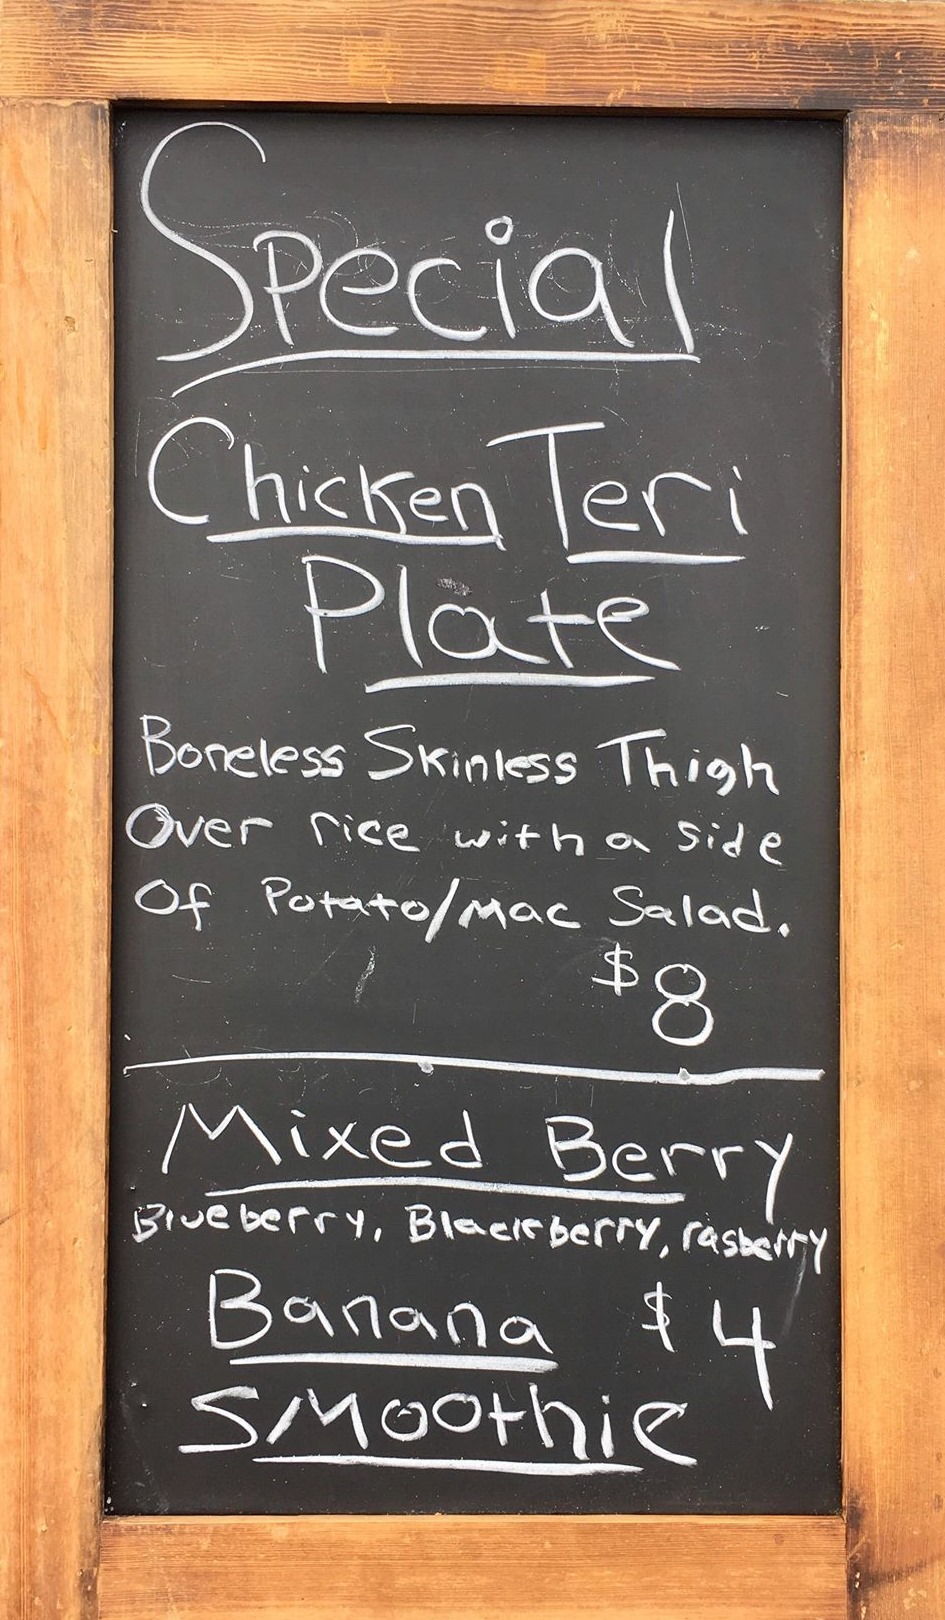 Special
Chicken Teri
Plate
Boneless Skinless Thigh
Over rice with a side
Of Potato/Mac Salad.
$8
Mixed Berry
Blueberry, Blackberry, rasberry
Banana $4
Smoothie